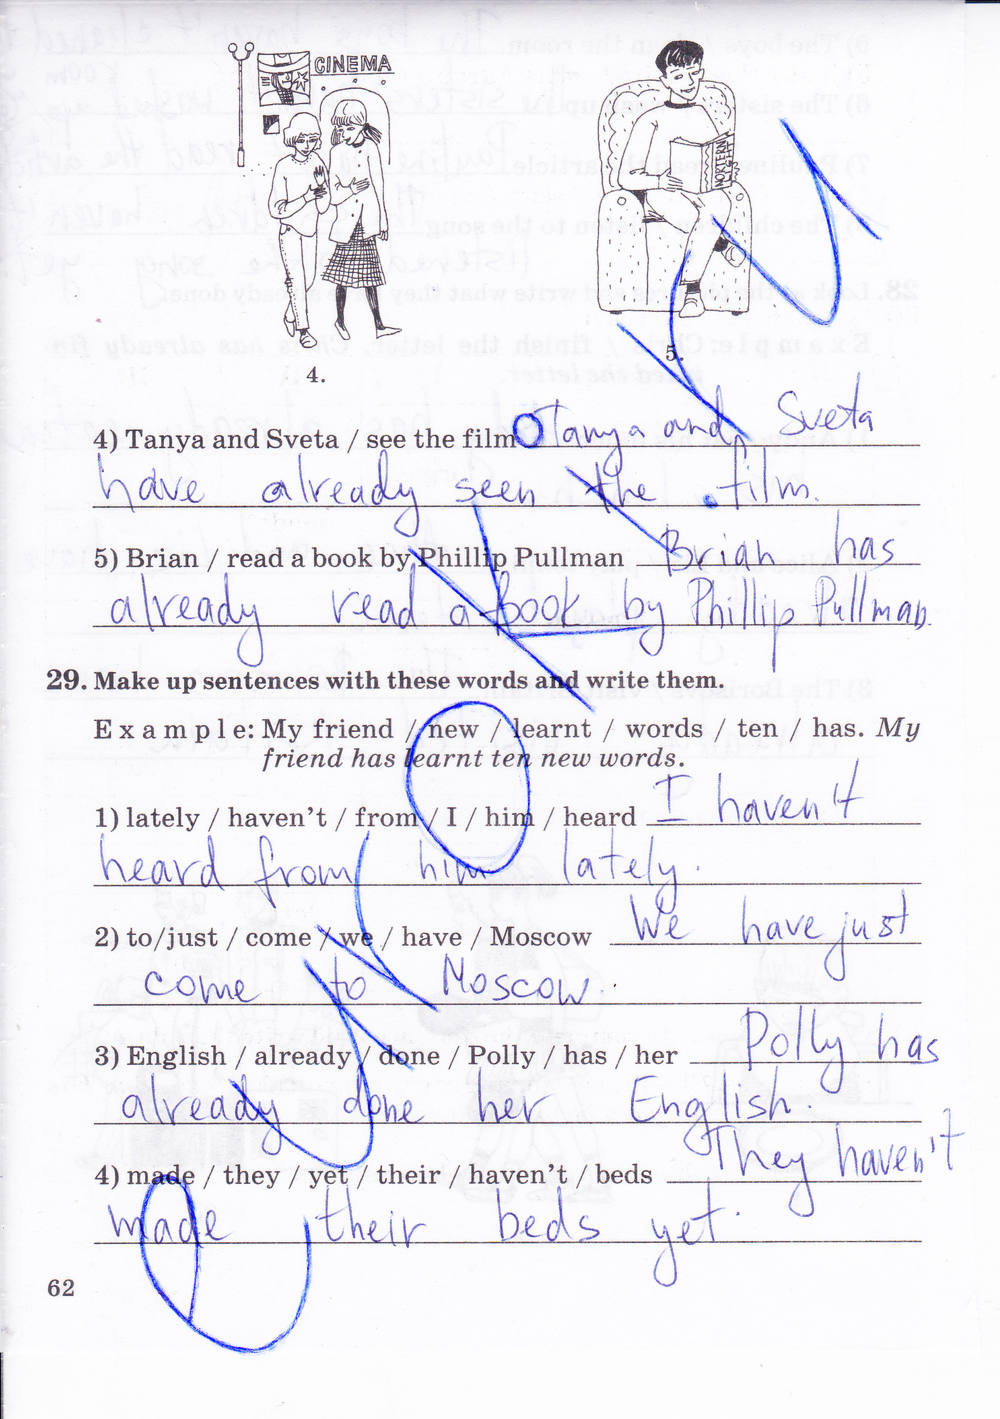 CINEMA
NORTHERN
4.
5.
4) Tanya and Sveta / see the film Tanya and Sveta
have already seen the film.
5) Brian / read a book by Phillip Pullman Brian has
already read a book by Phillip Pullman.
29. Make up sentences with these words and write them.
Example: My friend / new / learnt / words / ten / has. My
friend has learnt ten new words.
1) lately / haven't / from / I / him / heard I haven't
heard from him lately.
2) to/just / come / we / have / Moscow We have just
come to Moscow.
3) English / already / done / Polly / has / her Polly has
already done her English.
4) made / they / yet / their / haven't / beds They haven't
made their beds yet.
62